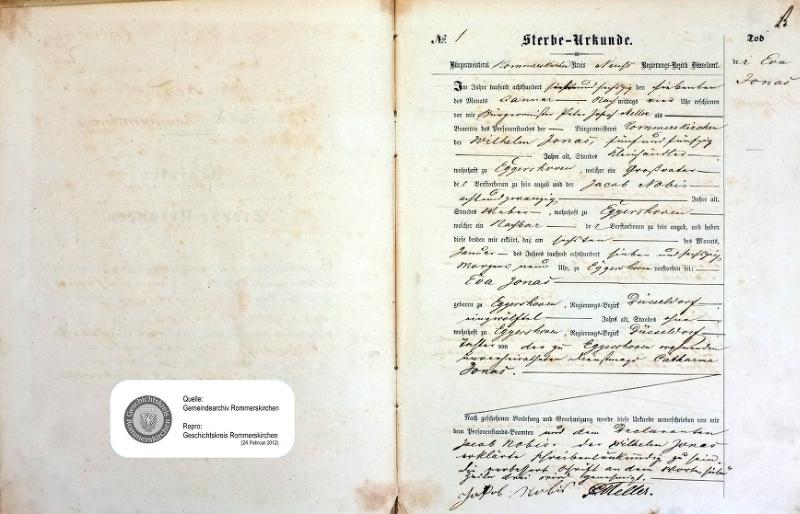 № 1
Sterbe-Urkunde.
Tod
der Eva
Jonas
Bürgermeisterei Rommerskirchen Kreis Neuss Regierungs-Bezirk Düsseldorf.
Im Jahre tausend achthundert und sechszig den siebenten
des Monats Januar Nachmittags vier Uhr erschienen
vor mir Bürgermeister Peter Josef Meller als
Beamten des Personenstandes der Bürgermeisterei Rommerskirchen
der Wilhelm Jonas, fünf und fünfzig
Jahre alt, Standes Kleinhändler
wohnhaft zu Eggershoven, welcher ein Großvater
der Verstorbenen zu sein angab und der Jacob Nobis
acht und zwanzig Jahre alt,
Standes Weber, wohnhaft zu Eggershoven
welcher ein Nachbar der Verstorbenen zu sein angab, und haben
diese beiden mir erklärt, daß am sechsten des Monats,
Januar des Jahres tausend achthundert sieben und sechszig,
Morgens neun Uhr, zu Eggershoven verstorben sei:
Eva Jonas
geboren zu Eggershoven, Regierungs-Bezirk Düsseldorf
Jahre alt, Standes ohne
wohnhaft zu Eggershoven, Regierungs-Bezirk Düsseldorf
Tochter von der zu Eggershoven wohnenden
unverheiratheten Dienstmagd Catharina
Jonas.
Nach geschehener Vorlesung und Genehmigung wurde diese Urkunde unterschrieben von mir
dem Personenstands-Beamten und dem Declaranten
Jacob Nobis. der Wilhelm Jonas
erklärte schreibensunkundig zu sein.
Die verbessert Schrift an dem Worte sieben
Zeile drei wird genehmigt.
Jakob Nobis PMeller.
Geschichtskreis Rommerskirchen
Quelle:
Gemeindearchiv Rommerskirchen
Repro:
Geschichtskreis Rommerskirchen
(24.Februar 2012)